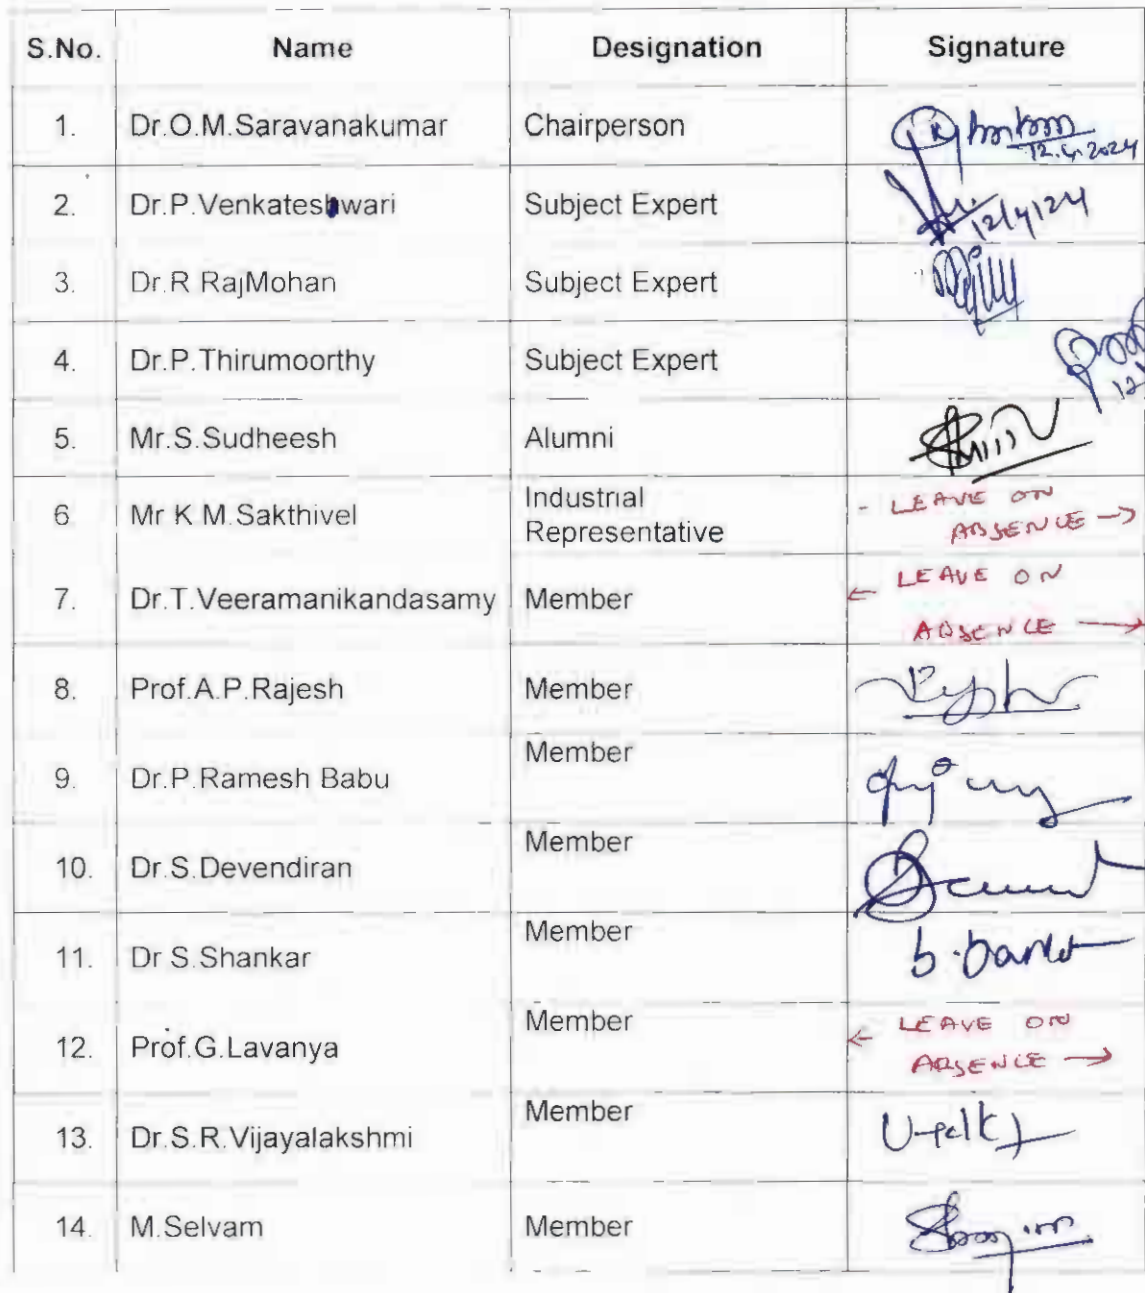 S.No. Name Designation Signature
1. Dr.O.M.Saravanakumar Chairperson
12.4.2024
2. Dr.P.Venkateshwari Subject Expert
12/4/24
3. Dr.R RajMohan Subject Expert
4. Dr.P.Thirumoorthy Subject Expert
5. Mr.S.Sudheesh Alumni
6 Mr K.M.Sakthivel Industrial
Representative
- LEAVE ON
ABSENCE →
7. Dr.T.Veeramanikandasamy Member
← LEAVE ON
ABSENCE →
8. Prof.A.P.Rajesh Member
9. Dr.P.Ramesh Babu Member
10. Dr.S.Devendiran Member
11. Dr S.Shankar Member
12. Prof.G.Lavanya Member
← LEAVE ON
ABSENCE →
13. Dr.S.R.Vijayalakshmi Member
14. M.Selvam Member